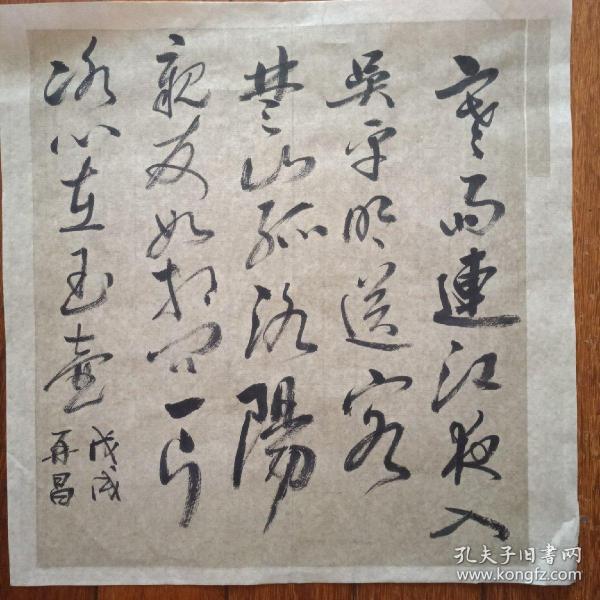 寒雨連江夜入
吳平明送客
楚山孤洛陽
親友如相問一片
冰心在玉壺
戊戌
再昌
孔夫子旧書网
www.kongfz.com